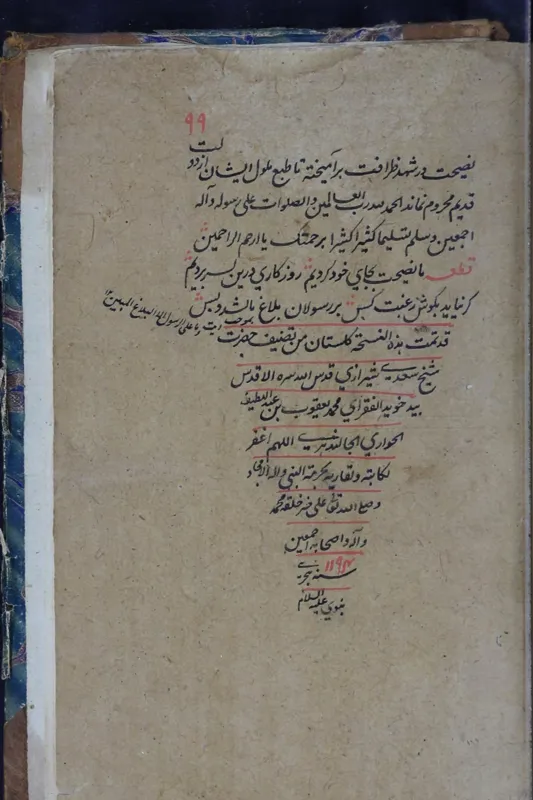 ۹۹
نصیحت در شهد ظرافت برآمیخته تا طبع ملول ایشان از دولت
قدیم محروم نماند الحمد لله رب العالمین والصلوات علی رسوله وآله
اجمعین وسلم تسلیما کثیرا کثیرا برحمتک یا ارحم الراحمین
قطعه ما نصیحت بجای خود کردیم روزکاری درین بسر بردیم
کر نیاید بکوش رغبت کس بر رسولان بلاغ باشد و بس
وما علی الرسول الا البلاغ المبین
قد تمت هذه النسخة کلستان من تصنیف حضرت
شیخ سعدی شیرازی قدس الله سره الاقدس
بید خوید الفقرای محمد یعقوب بن عبد اللطیف
اللهم اغفر
لکاتبه وقاریه بحرمة النبی واله الامجاد
وصلی الله تعالی علی خیر خلقه محمد
وآله واصحابه اجمعین
سنه ۱۱۹۴ هجری
نبوی علیه السلام